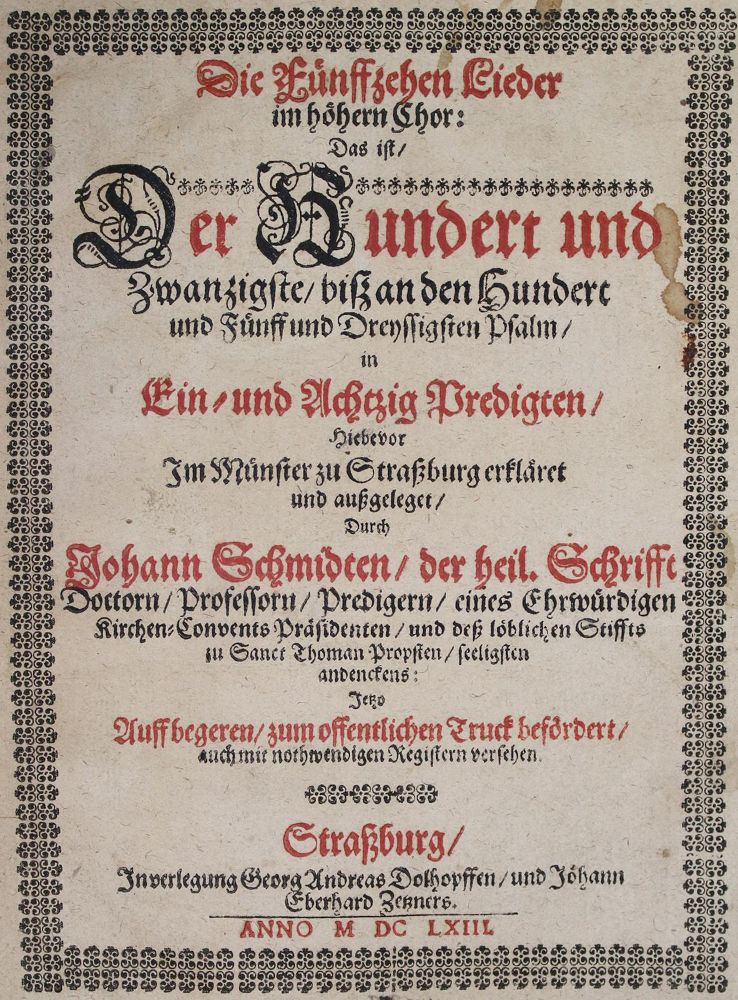 Die Fünffzehen Lieder
im höhern Chor:
Das ist/
Der Hundert und
Zwanzigste/ biß an den Hundert
und Fünff und Dreyssigsten Psalm/
in
Ein- und Achtzig Predigten/
Hiebevor
Im Münster zu Straßburg erkläret
und außgeleget/
Durch
Johann Schmidten/ der heil. Schrifft
Doctorn/ Professorn/ Predigern/ eines Ehrwürdigen
Kirchen-Convents Präsidenten/ und deß löblichen Stiffts
zu Sanct Thoman Propsten/ seeligsten
andenckens:
Jetzo
Auff begeren/ zum offentlichen Truck befördert/
auch mit nothwendigen Registern versehen.
Straßburg/
In verlegung Georg Andreas Dolhopffen/ und Johann
Eberhard Zetzners.
ANNO M DC LXIII.